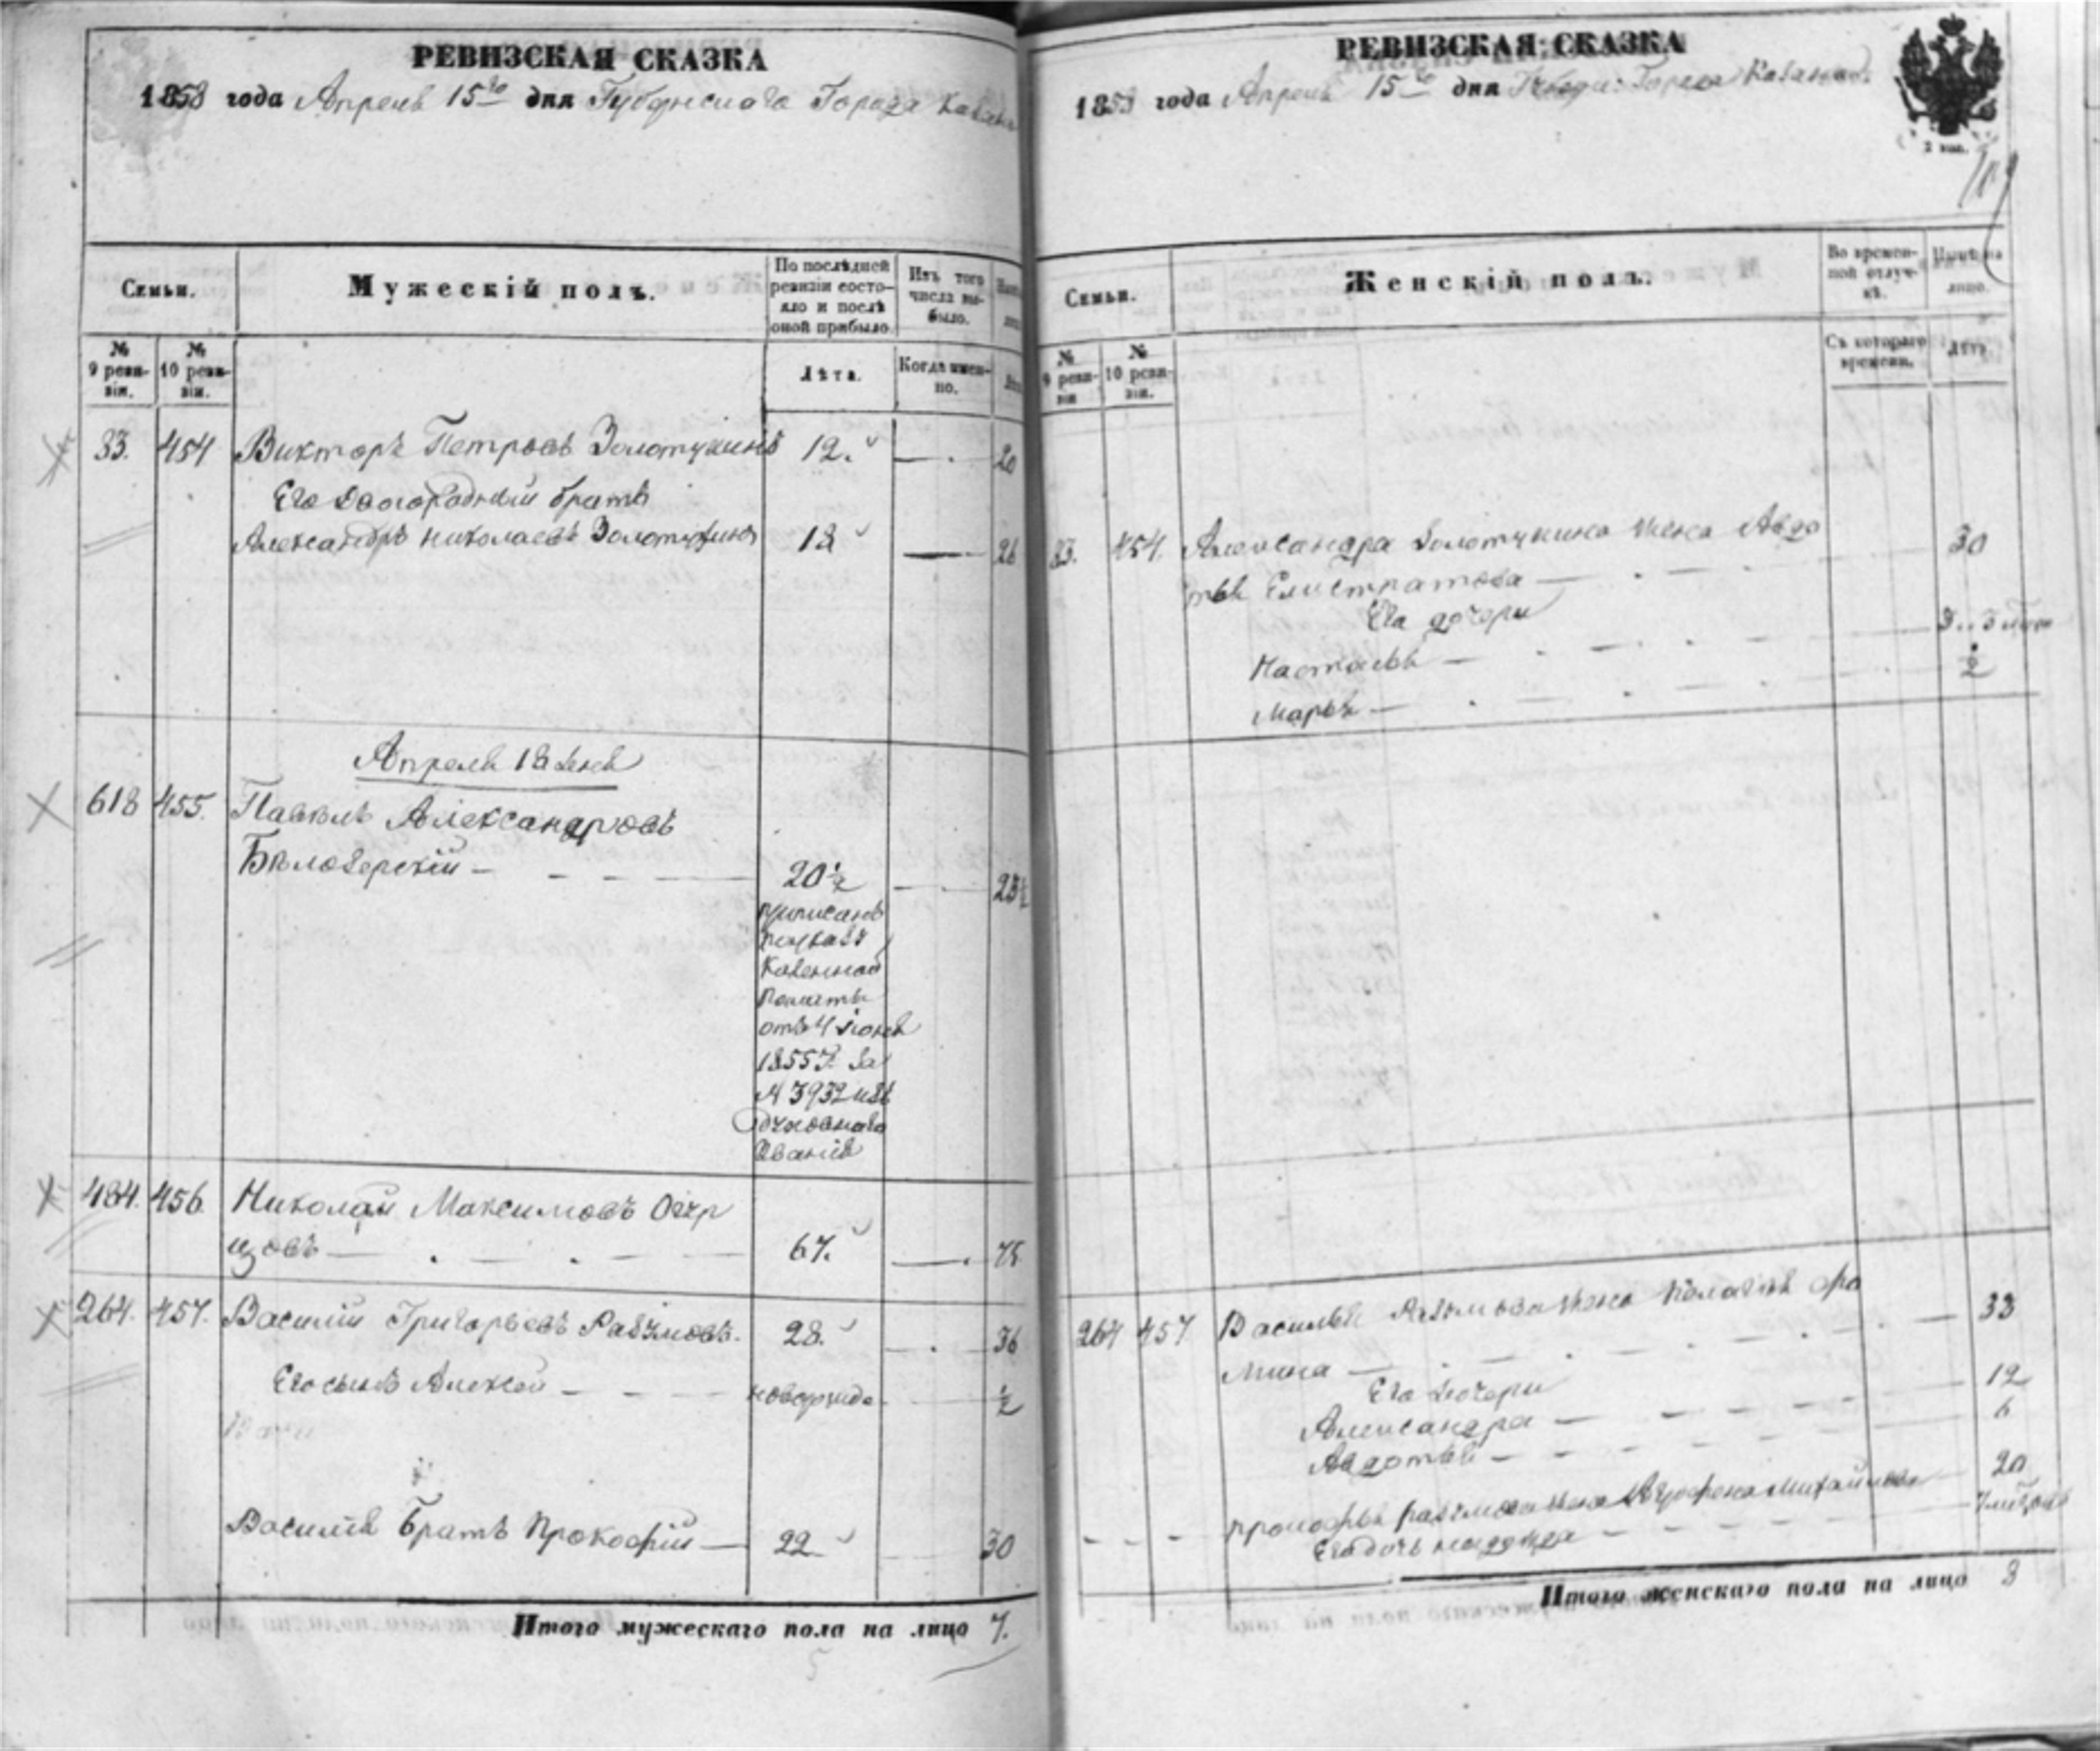 РЕВИЗСКАЯ СКАЗКА
1858 года Апреля 15го дня Губернского Города Казани
Семьи.
Мужескій полъ.
По послѣдней
ревизіи состо-
яло и послѣ
оной прибыло.
Изъ того
числа вы-
было.
№
9 реви-
зіи.
№
10 реви-
зіи.
Лѣта.
Когда имен-
но.
83. 454 Викторъ Петровъ Золотухинъ 12. 20
Его Двоюродный братъ
Александръ Николаевъ Золотухинъ 18 26
Апреля 18 дня
618 455. Павелъ Александровъ
Бѣлозерскій 20 1/2
приписанъ
по указу
Казенной
Палаты
отъ 4 Іюня
1855 г. за
№ 3932 изъ
духовнаго
званія
484. 456. Николай Максимовъ Огур
цовъ 67. 75
264. 457. Василій Григорьевъ Разумовъ. 28. 36
Его сынъ Алексей новорожде 1/2
Василія Братъ Прокофій 22 30
Итого мужескаго пола на лицо 7.
РЕВИЗСКАЯ СКАЗКА
1858 года Апреля 15го дня Губерн: Города Казани
109
Семьи.
Женскій полъ.
Во времен-
ной отлуч-
кѣ.
лицо.
№
9 реви-
зіи
№
10 реви-
зіи.
Съ котораго
времени.
Лѣта
83. 454. Александра Золотухина жена Авдо
тья Елистратова 30
Его дочери
Наталья
Марья 1/2
264 457 Василья Разумова жена Пелагея Фо
мина 33
Его дочери
Александра 12
Авдотья 6
Прокофья Разумова жена Аграфена Михайлова 20
Его дочь Надежда
Итого женскаго пола на лицо 8